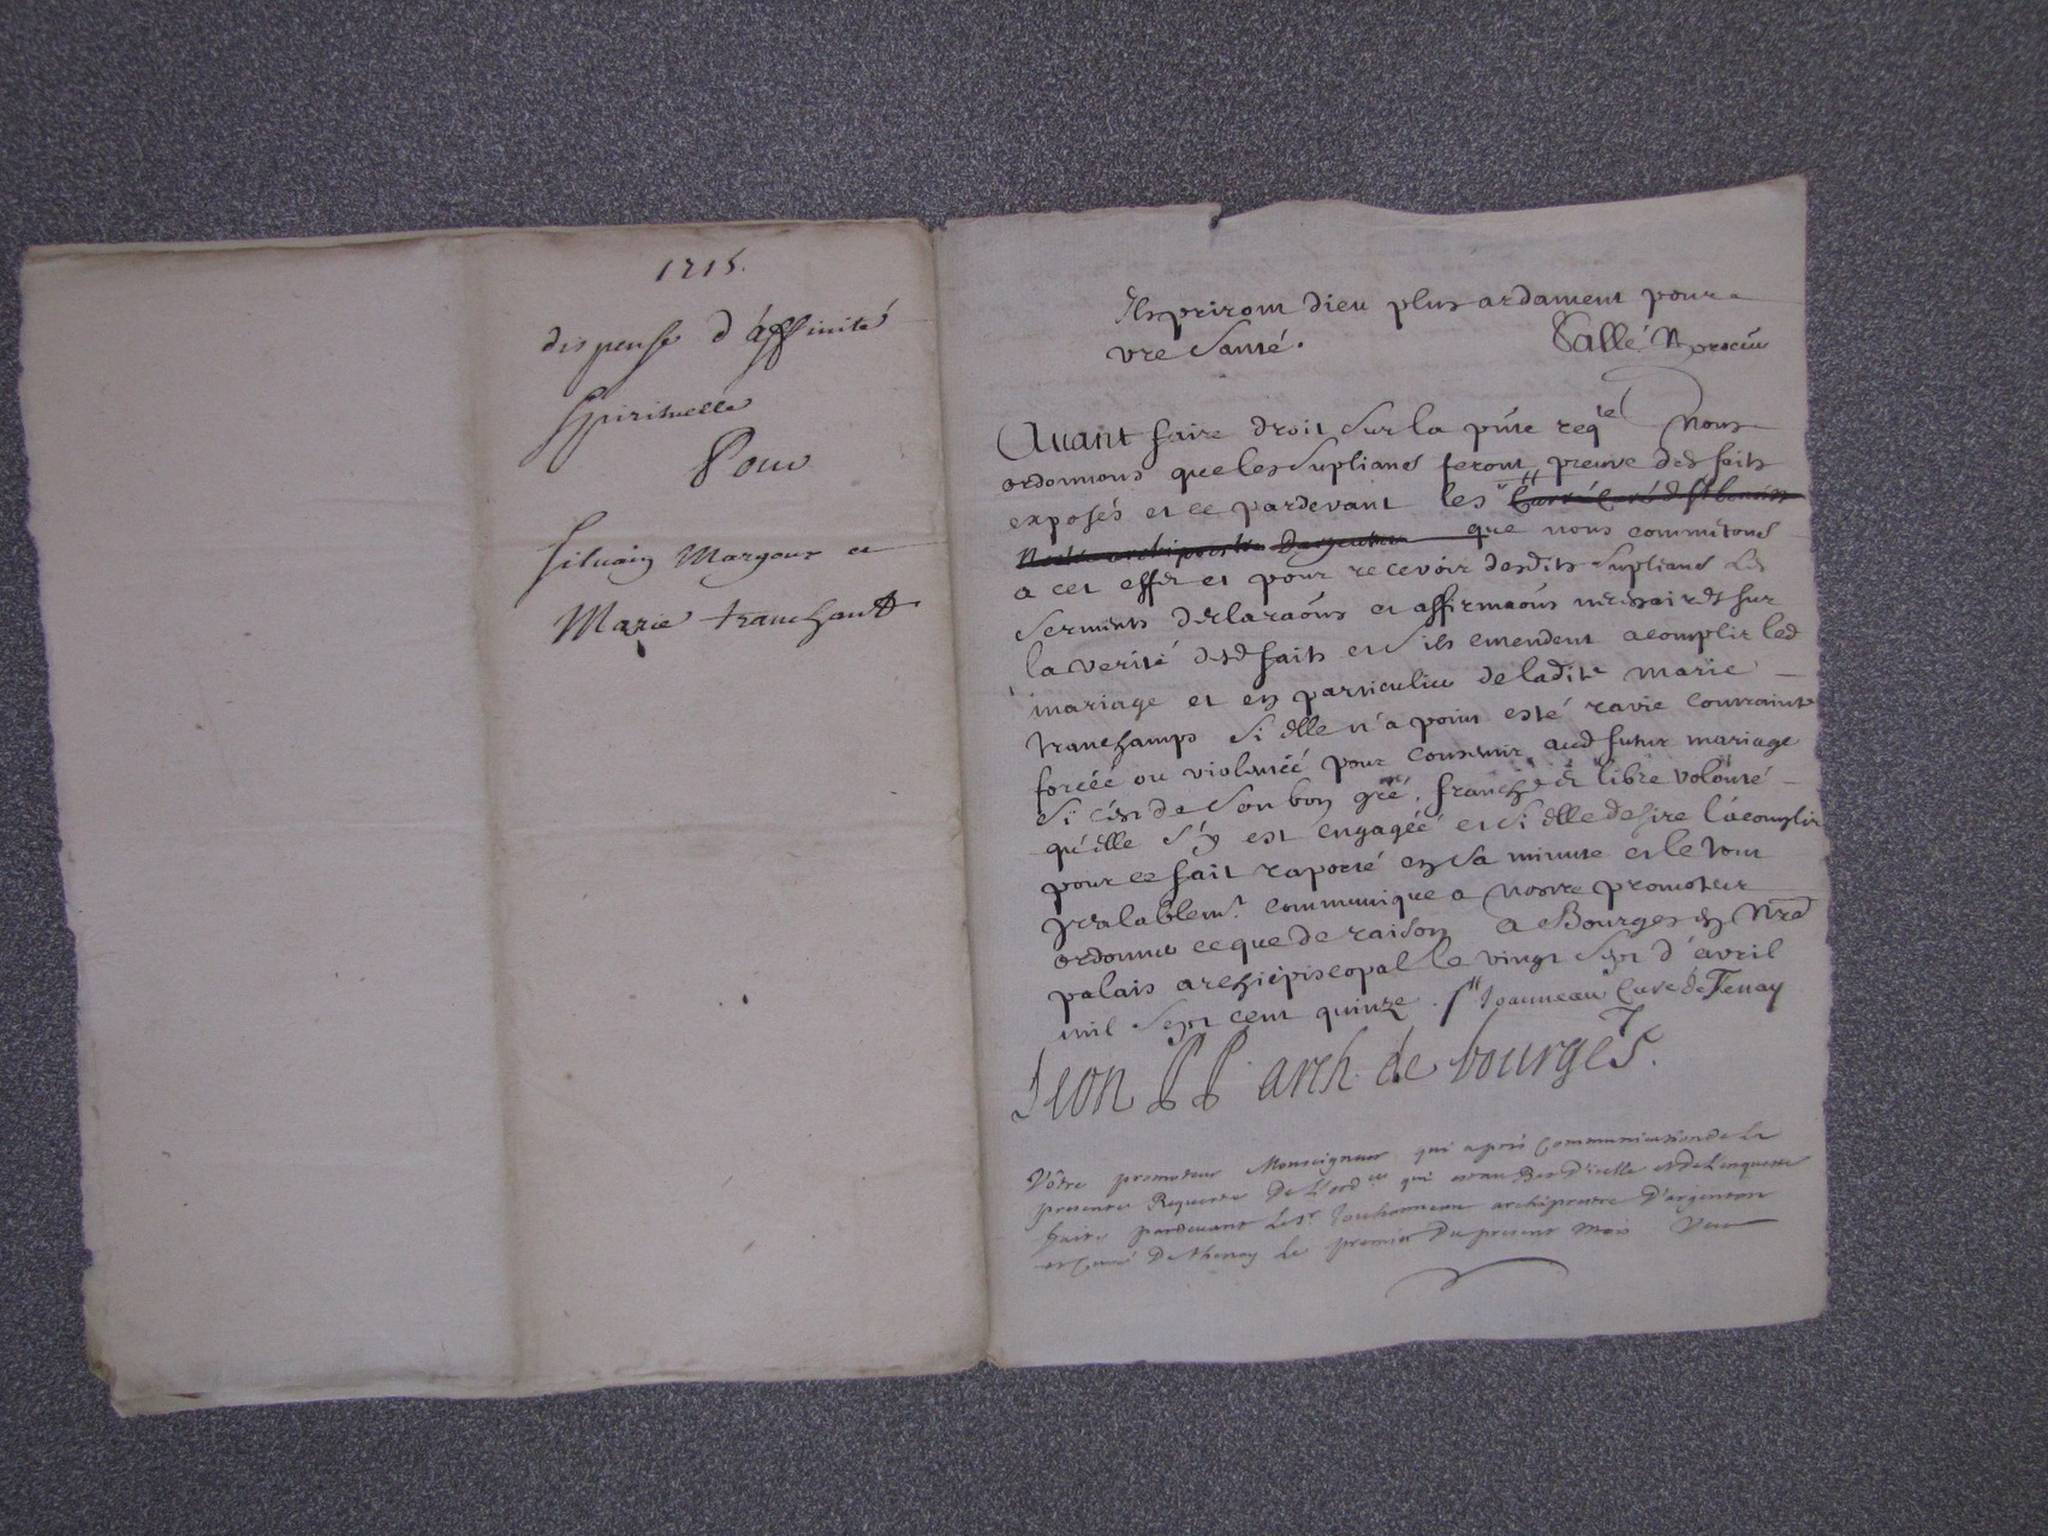 1715.
dispense d'affinité
spirituelle
Pour
silvain Margoux et
Marie tranchant
Ils priront dieu plus ardament pour
vre santé. Sallé procur
Avant faire droit sur la pnte reqte Nous
ordonnons que les supliants feront preuve des faits
exposés et ce pardevant les
que nous commetons
a cet effet et pour recevoir desdits supliants les
serments declaraons et affirmaons necessaires sur
la verité desd faits et s'ils entendent acomplir led
mariage et en particulier de ladite marie
tranchamps si elle n'a point esté ravie contrainte
forcée ou violentée pour consentir aud futur mariage
si c'est de son bon gré, franche et libre volonté
qu'elle s'y est engagée et si elle desire l'acomplir
pour ce fait raporté en sa minute et le tout
prealablemt communiqué a nostre promoteur
ordonner ce que de raison a Bourges en Nred
palais archiepiscopal le vingt sept d'avril
mil sept cent quinze. Joanneau Curé de Tenay
Leon P P arch. de bourges.
Vôtre promoteur Monseigneur qui apres Communication de la
presente Requeste De L'ordce qui est au Bas D'icelle et de L'enqueste
faite pardevant Le Sr Jouhanneau archiprestre D'argenton
et Curé De thenay Le premier Du present Mois Veu